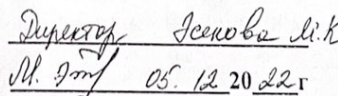 Директор Усенова М.К
05. 12 2022 г